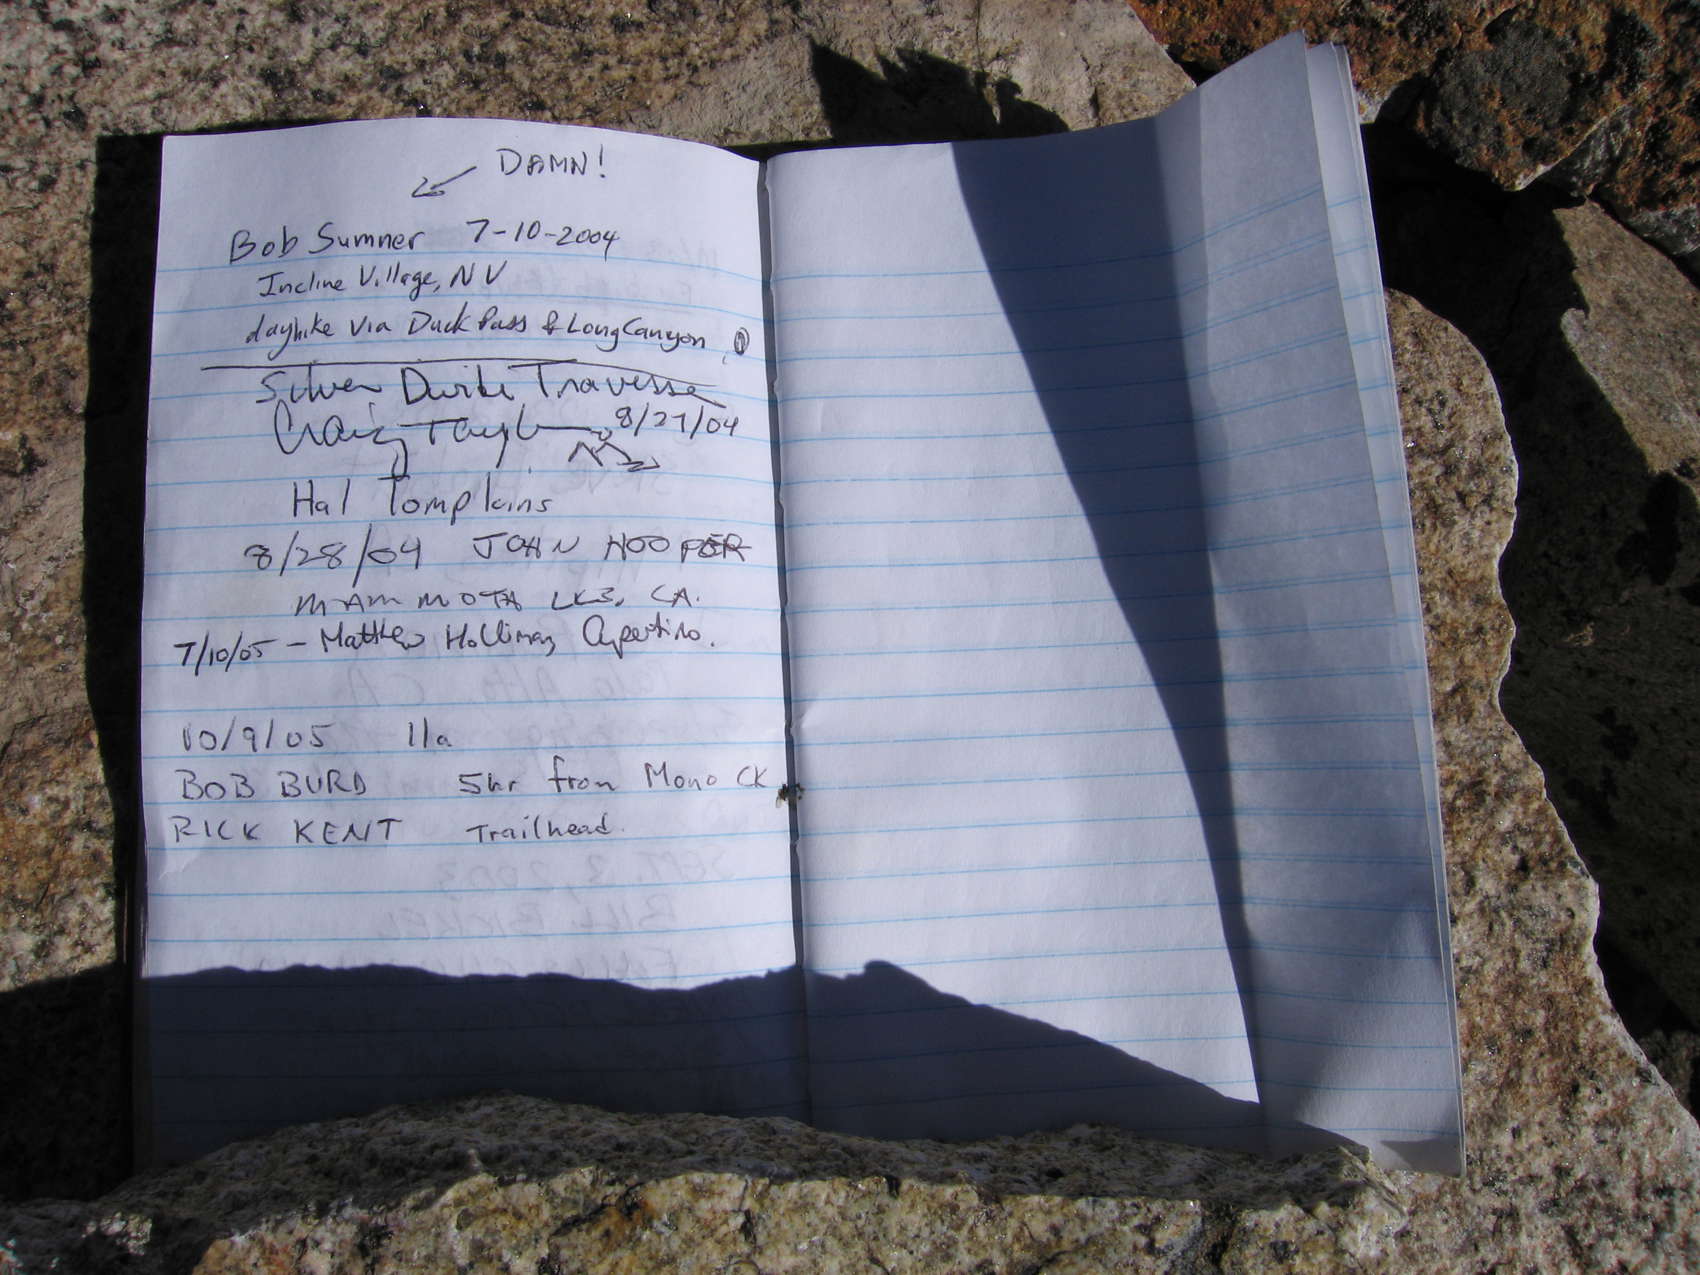 DAMN!
Bob Sumner 7-10-2004
Incline Village, NV
dayhike via Duck Pass & Long Canyon
Silver Divide Traverse
Craig Taylor 8/27/04
Hal Tompkins
8/28/04 JOHN HOOPER
MAMMOTH LKS, CA.
7/10/05 - Matthew Holliman, Cupertino.
10/9/05 11a
BOB BURD 5hr from Mono CK
RICK KENT Trailhead.
SEPT. 3, 2003